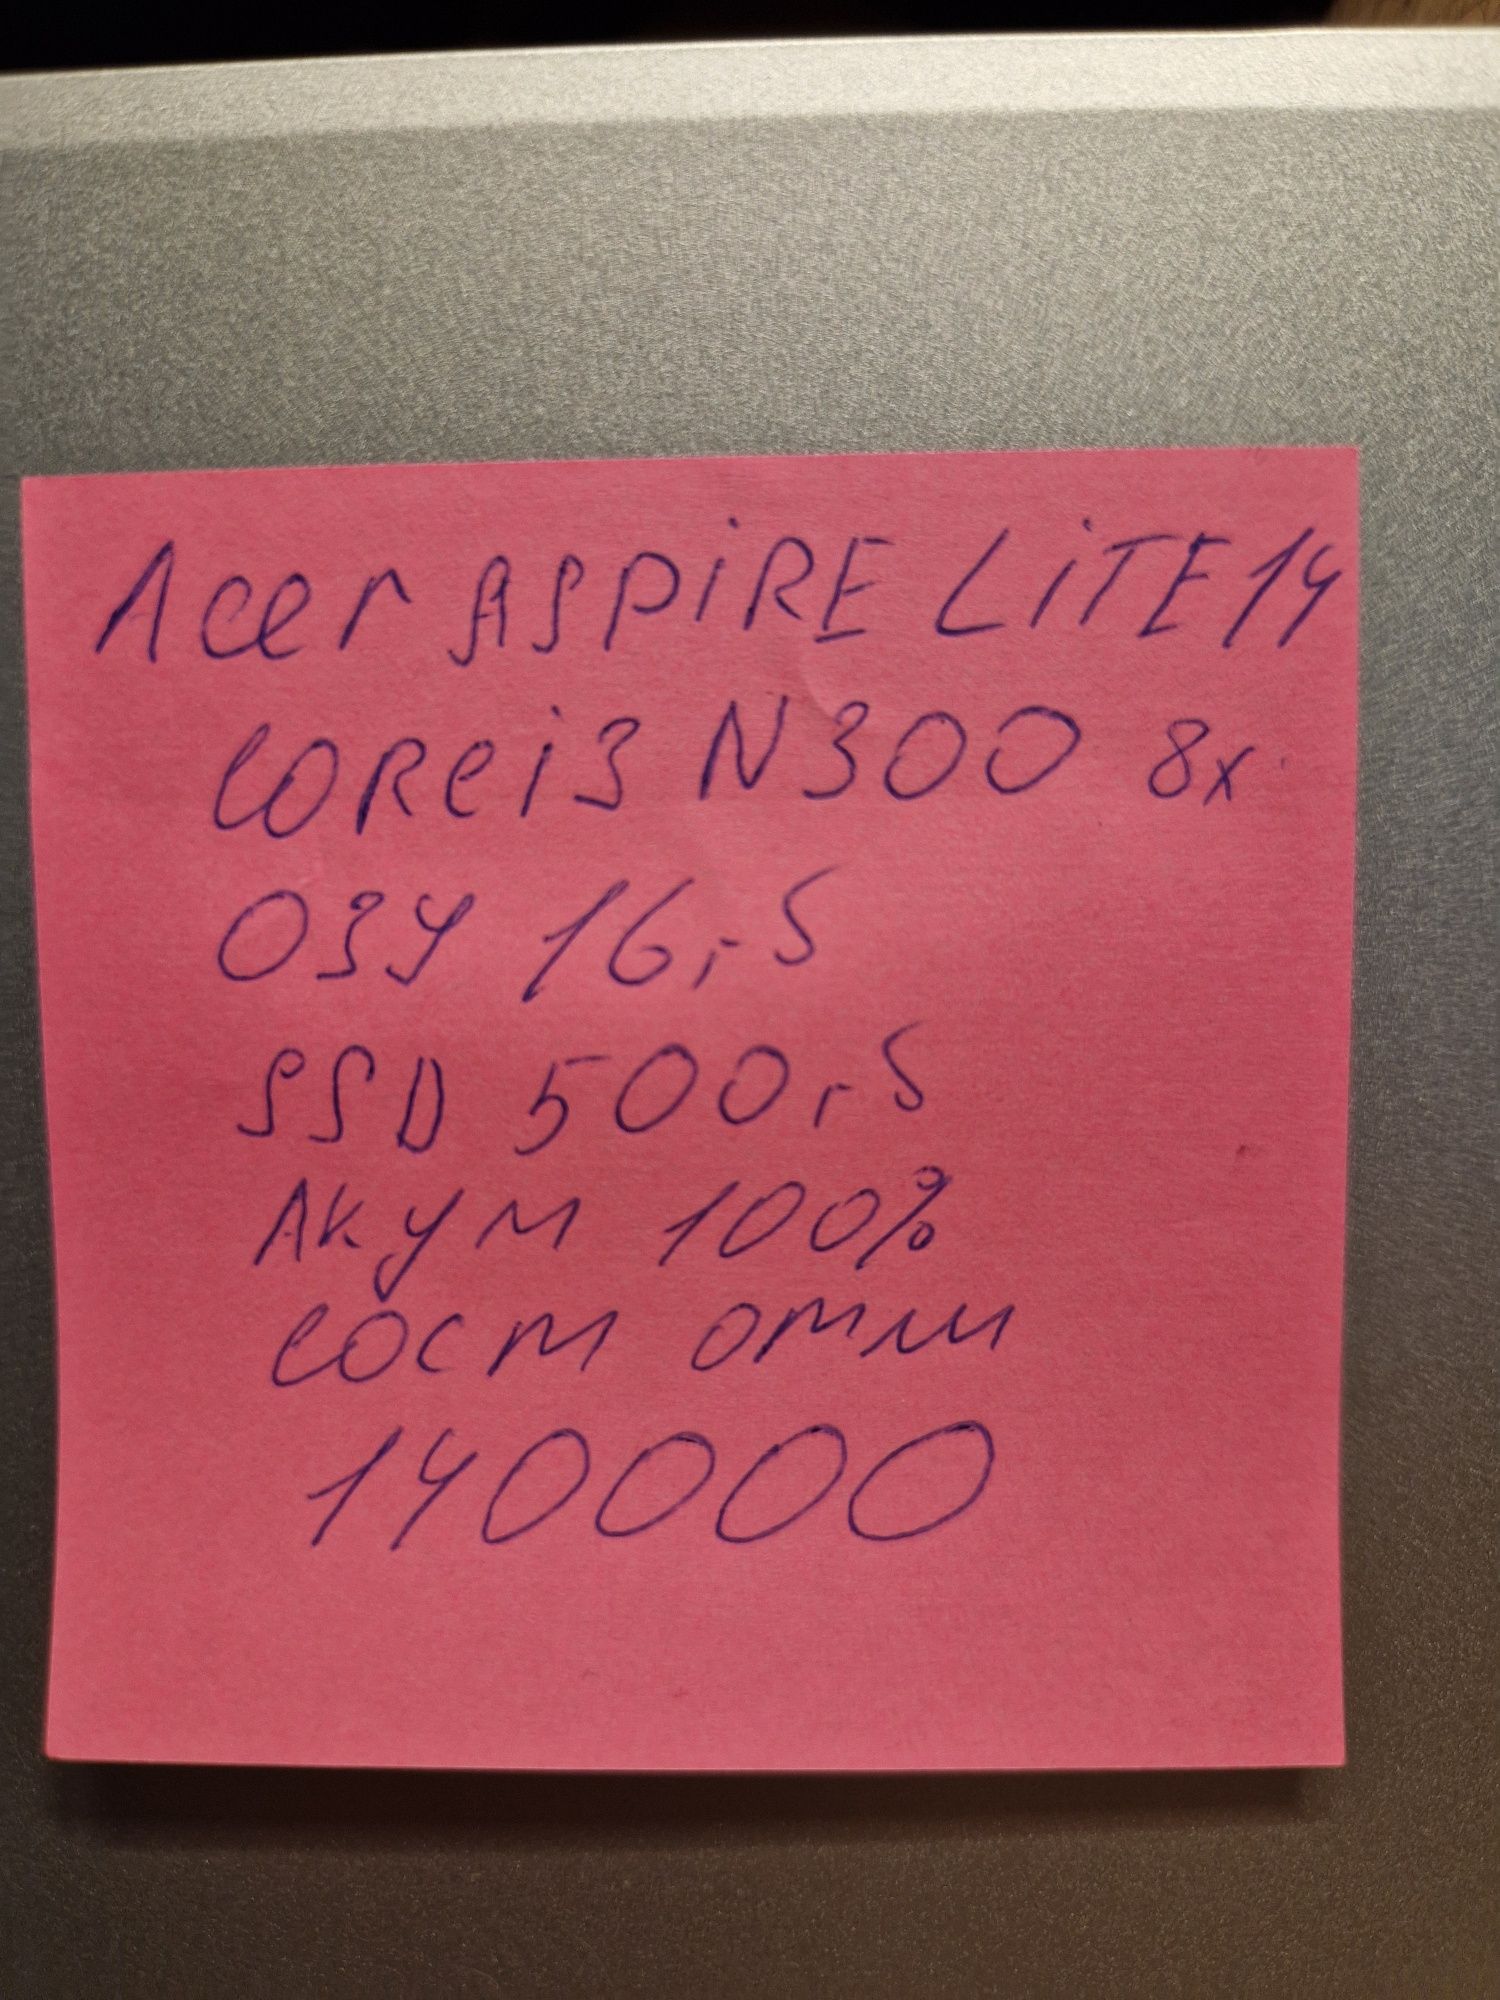 Acer ASPIRE LITE 14
CORei3 N300 8x
ОЗУ 16гб
SSD 500гб
Акум 100%
сост отли
140000